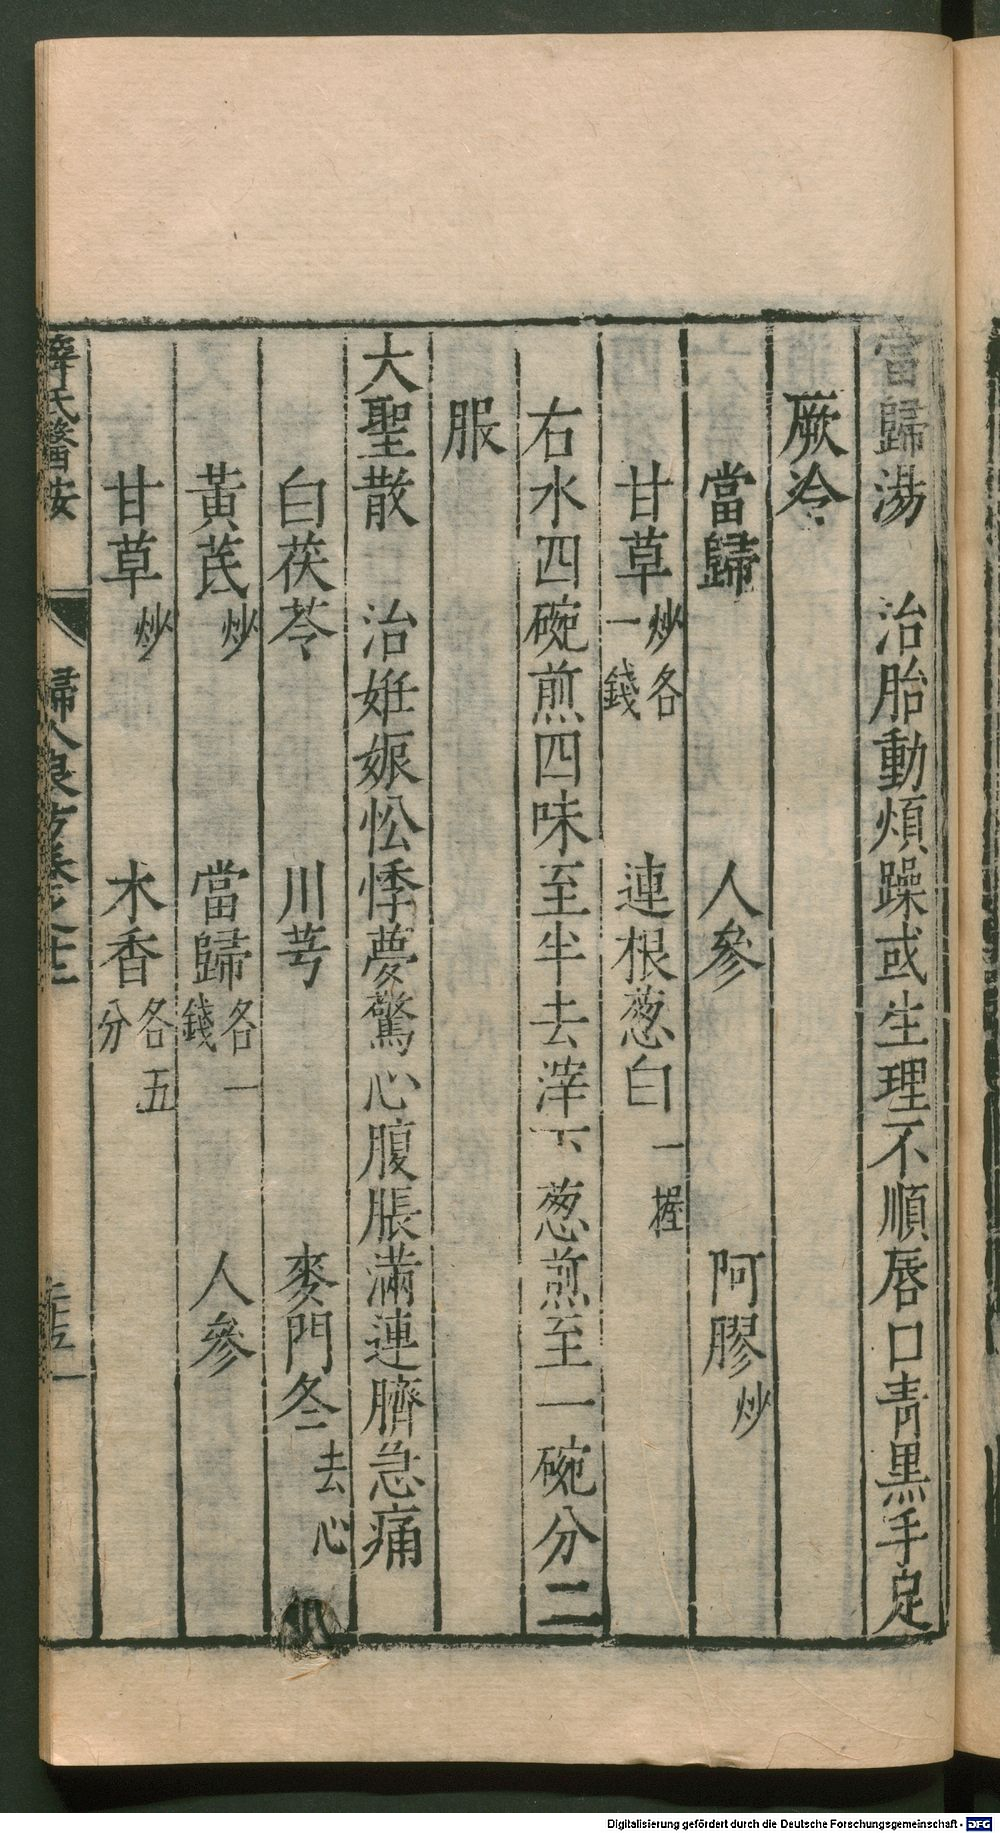 當歸湯　治胎動煩躁或生理不順唇口青黑手足
厥冷
當歸　人參　阿膠炒
甘草炒各一錢　連根葱白一握
右水四碗煎四味至半去滓下葱煎至一碗分二
服
大聖散　治姙娠忪悸夢驚心腹脹滿連臍急痛
白茯苓　川芎　麥門冬去心
黃茋炒　當歸各一錢　人參
甘草炒　木香各五分
薛氏醫按　婦人良方卷之十二
Digitalisierung gefördert durch die Deutsche Forschungsgemeinschaft - DFG